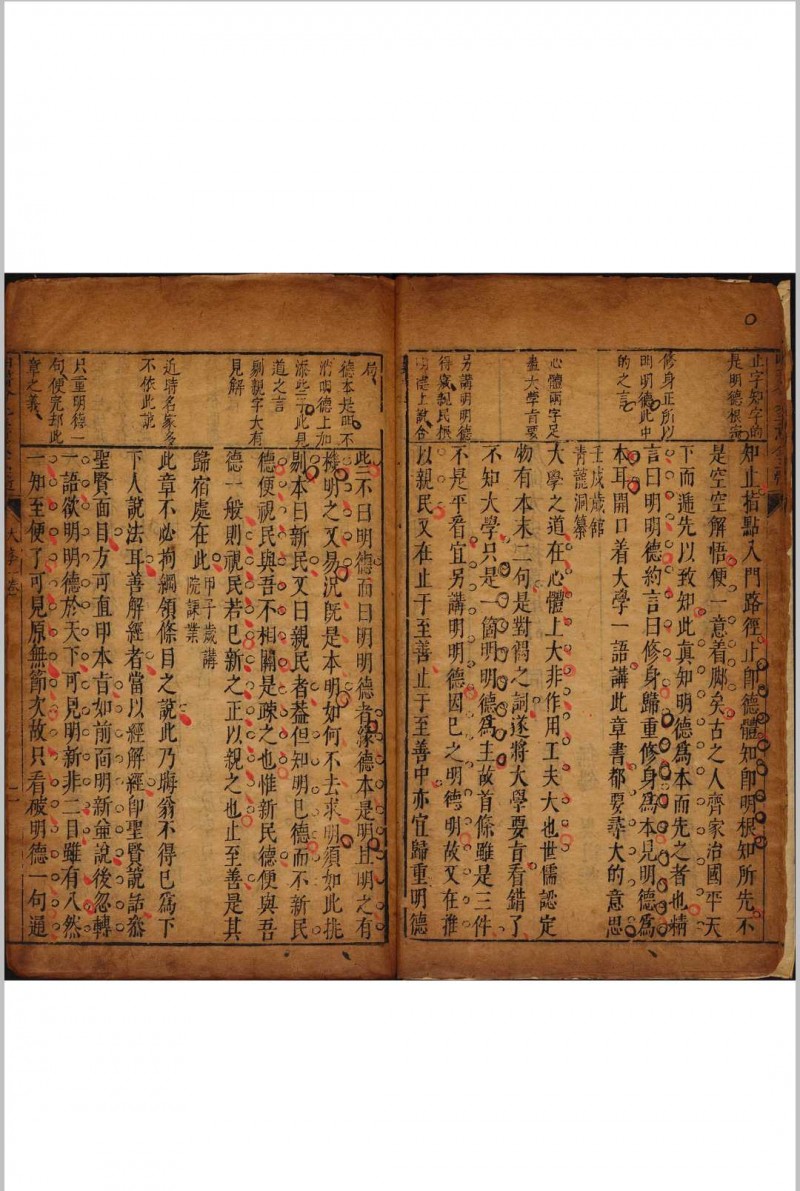 止字知字的
是明德根
修身正所以
明明德此中
的之言
心體兩字足
盡大學首要
另講明明德
得廣親民根
明德上說合
知止指點入門路徑止即德體知即明根知所先不
是空空解悟便一意着脚矣古之人齊家治國平天
下而遞先以致知此真知明德爲本而先之者也精
言曰明明德約言曰修身歸重修身爲本見明德爲
本耳開口着大學一語講此章書都要尋大的意思
壬戌歲館
青龍洞纂
大學之道在心體上大非作用工夫大也世儒認定
物有本末二句是對偶之詞遂將大學要旨看錯了
不知大學只是一箇明明德爲主故首條雖是三件
不是平看宜另講明明德因已之明德明故又在推
以親民又在止于至善止于至善中亦宜歸重明德
局
德本是明不
消明德上加
添些子此見
道之言
剔親字大有
見解
近時名家多
不依此說
只重明德一
句便完却此
章之義
此不曰明德而曰明明德者緣德本是明且明之有
機明之又易況旣是本明如何不去求明須如此挑
剔本曰新民又曰親民者葢但知明已德而不新民
德便視民與吾不相關是疎之也惟新民德便與吾
德一般則視民若已新之正以親之也止至善是其
歸宿處在此
甲子歲講
院課業
此章不必拘綱領條目之說此乃晦翁不得已爲下
下人說法耳善解經者當以經解經即聖賢說話叅
聖賢面目方可直印本旨如前面明新並說後忽轉
一語欲明明德於天下可見明新非二目雖有八然
一知至便了可見原無節次故只看破明德一句通
大學 卷一